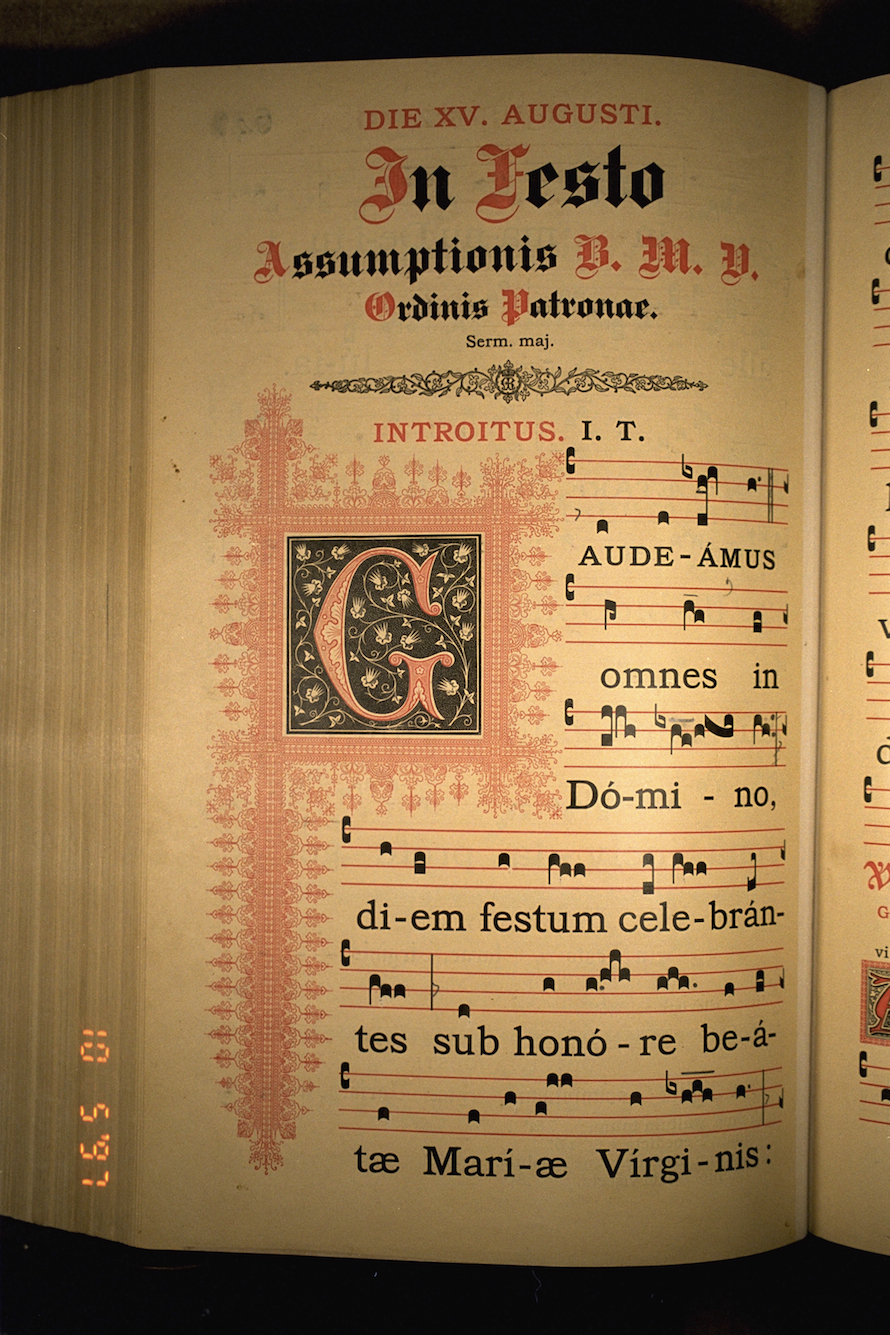 DIE XV. AUGUSTI.
In Festo
Assumptionis B. M. V.
Ordinis Patronae.
Serm. maj.
INTROITUS. I. T.
GAUDE-ÁMUS
omnes in
Dó-mi - no,
di-em festum cele-brán-
tes sub honó - re be-á-
tæ Marí-æ Vírgi-nis:
10 5 '97